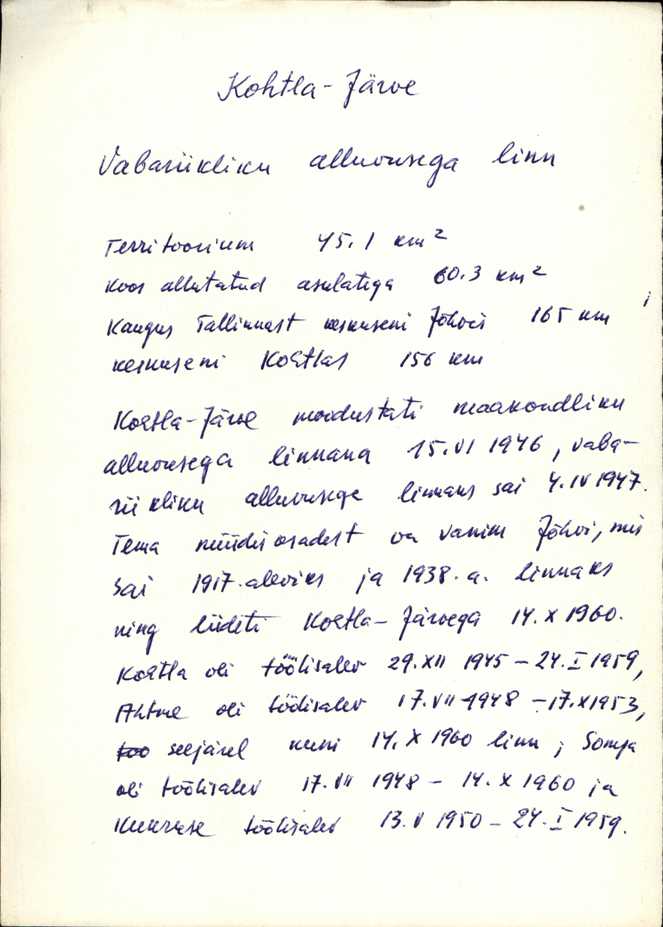 Kohtla-Järve
Vabariikliku alluvusega linn
Territoorium 45.1 km²
koos allutatud asulatega 60.3 km²
Kaugus Tallinnast keskuseni Jõhvis 165 km
keskuseni Kohtlas 156 km
Kohtla-Järve moodustati maakondliku
alluvusega linnana 15.VI 1946, vaba-
riikliku alluvusega linnaks sai 4.IV 1947.
Tema nüüdisosadest on vanim Jõhvi, mis
sai 1917. aleviks ja 1938.a. linnaks
ning liideti Kohtla-Järvega 14.X 1960.
Kohtla oli töölisalev 29.XII 1945 – 24.I 1959,
Ahtme oli töölisalev 17.VII 1948 – 17.X 1953,
seejärel kuni 14.X 1960 linn; Sompa
oli töölisalev 17.VII 1948 – 14.X 1960 ja
Kukruse töölisalev 13.V 1950 – 24.I 1959.